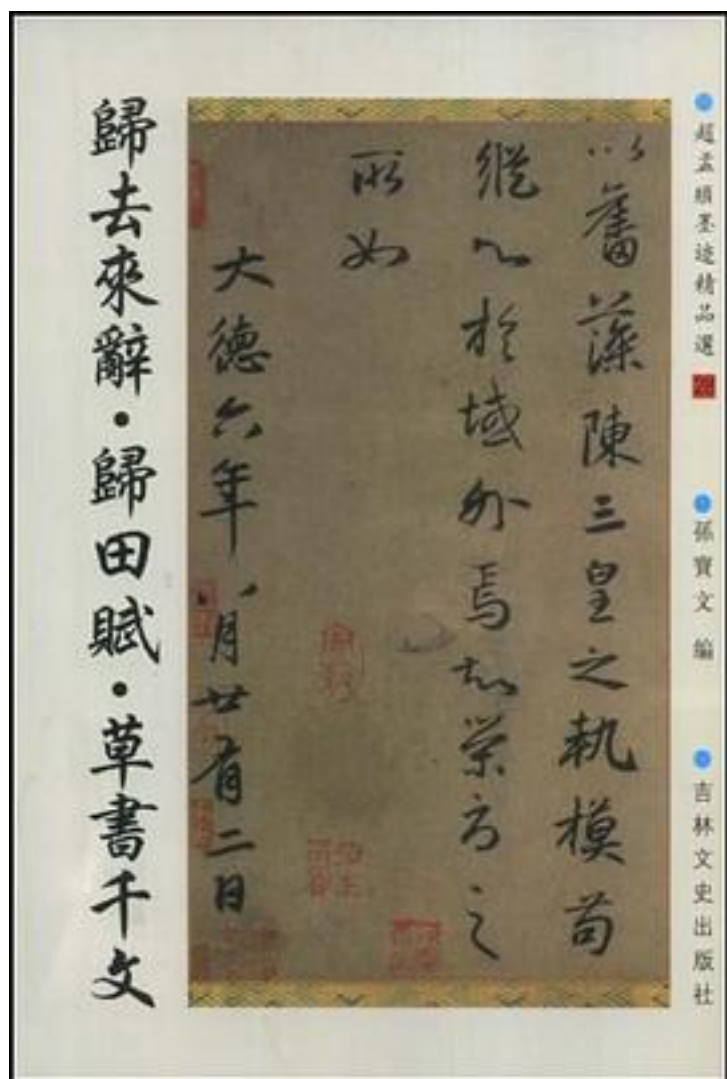 趙孟頫墨迹精品選
孫寶文 編
吉林文史出版社
以奮藻陳三皇之軌模苟
縱心於域外焉知榮辱之
所如
大德六年八月廿有二日
歸去來辭・歸田賦・草書千文